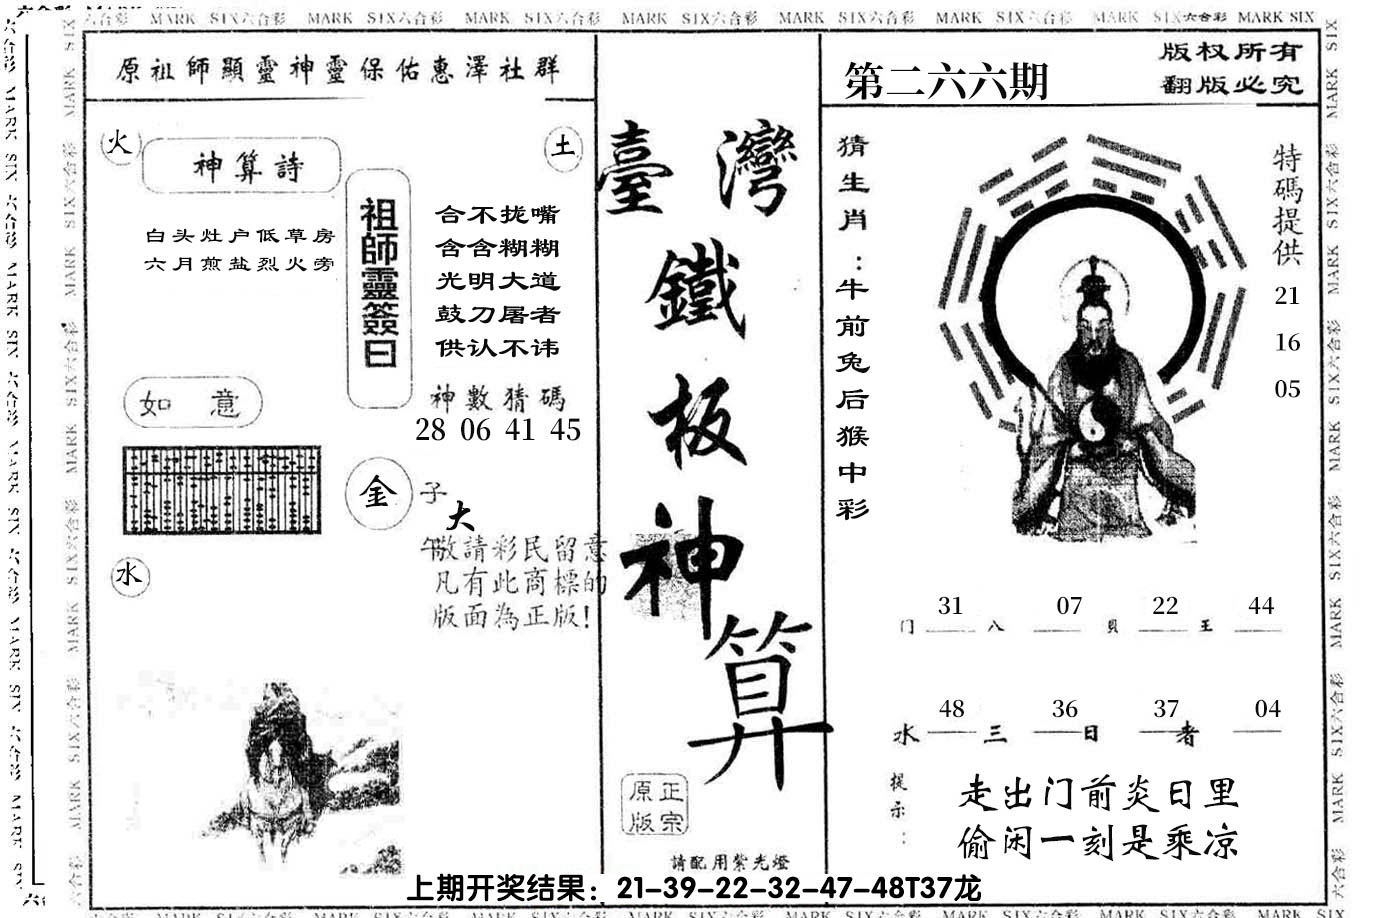 MARK SIX六合彩 MARK SIX六合彩 MARK SIX六合彩 MARK SIX六合彩 MARK SIX六合彩 MARK SIX六合彩 MARK SIX六合彩 MARK SIX
原祖師顯靈神靈保佑惠澤社群
第二六六期
版权所有
翻版必究
火
神算詩
土
白头灶户低草房
六月煎盐烈火旁
祖師靈簽曰
合不拢嘴
含含糊糊
光明大道
鼓刀屠者
供认不讳
神數猜碼
28 06 41 45
如 意
金
子
大
午
敬請彩民留意
凡有此商標的
版面為正版!
水
臺灣
鐵
板
神
算
正宗
原版
請配用紫光燈
猜生肖：牛前兔后猴中彩
特碼提供
21
16
05
31 07 22 44
门 八 貝 王
48 36 37 04
水 三 日 者
提示：
走出门前炎日里
偷闲一刻是乘凉
上期开奖结果：21-39-22-32-47-48T37龙